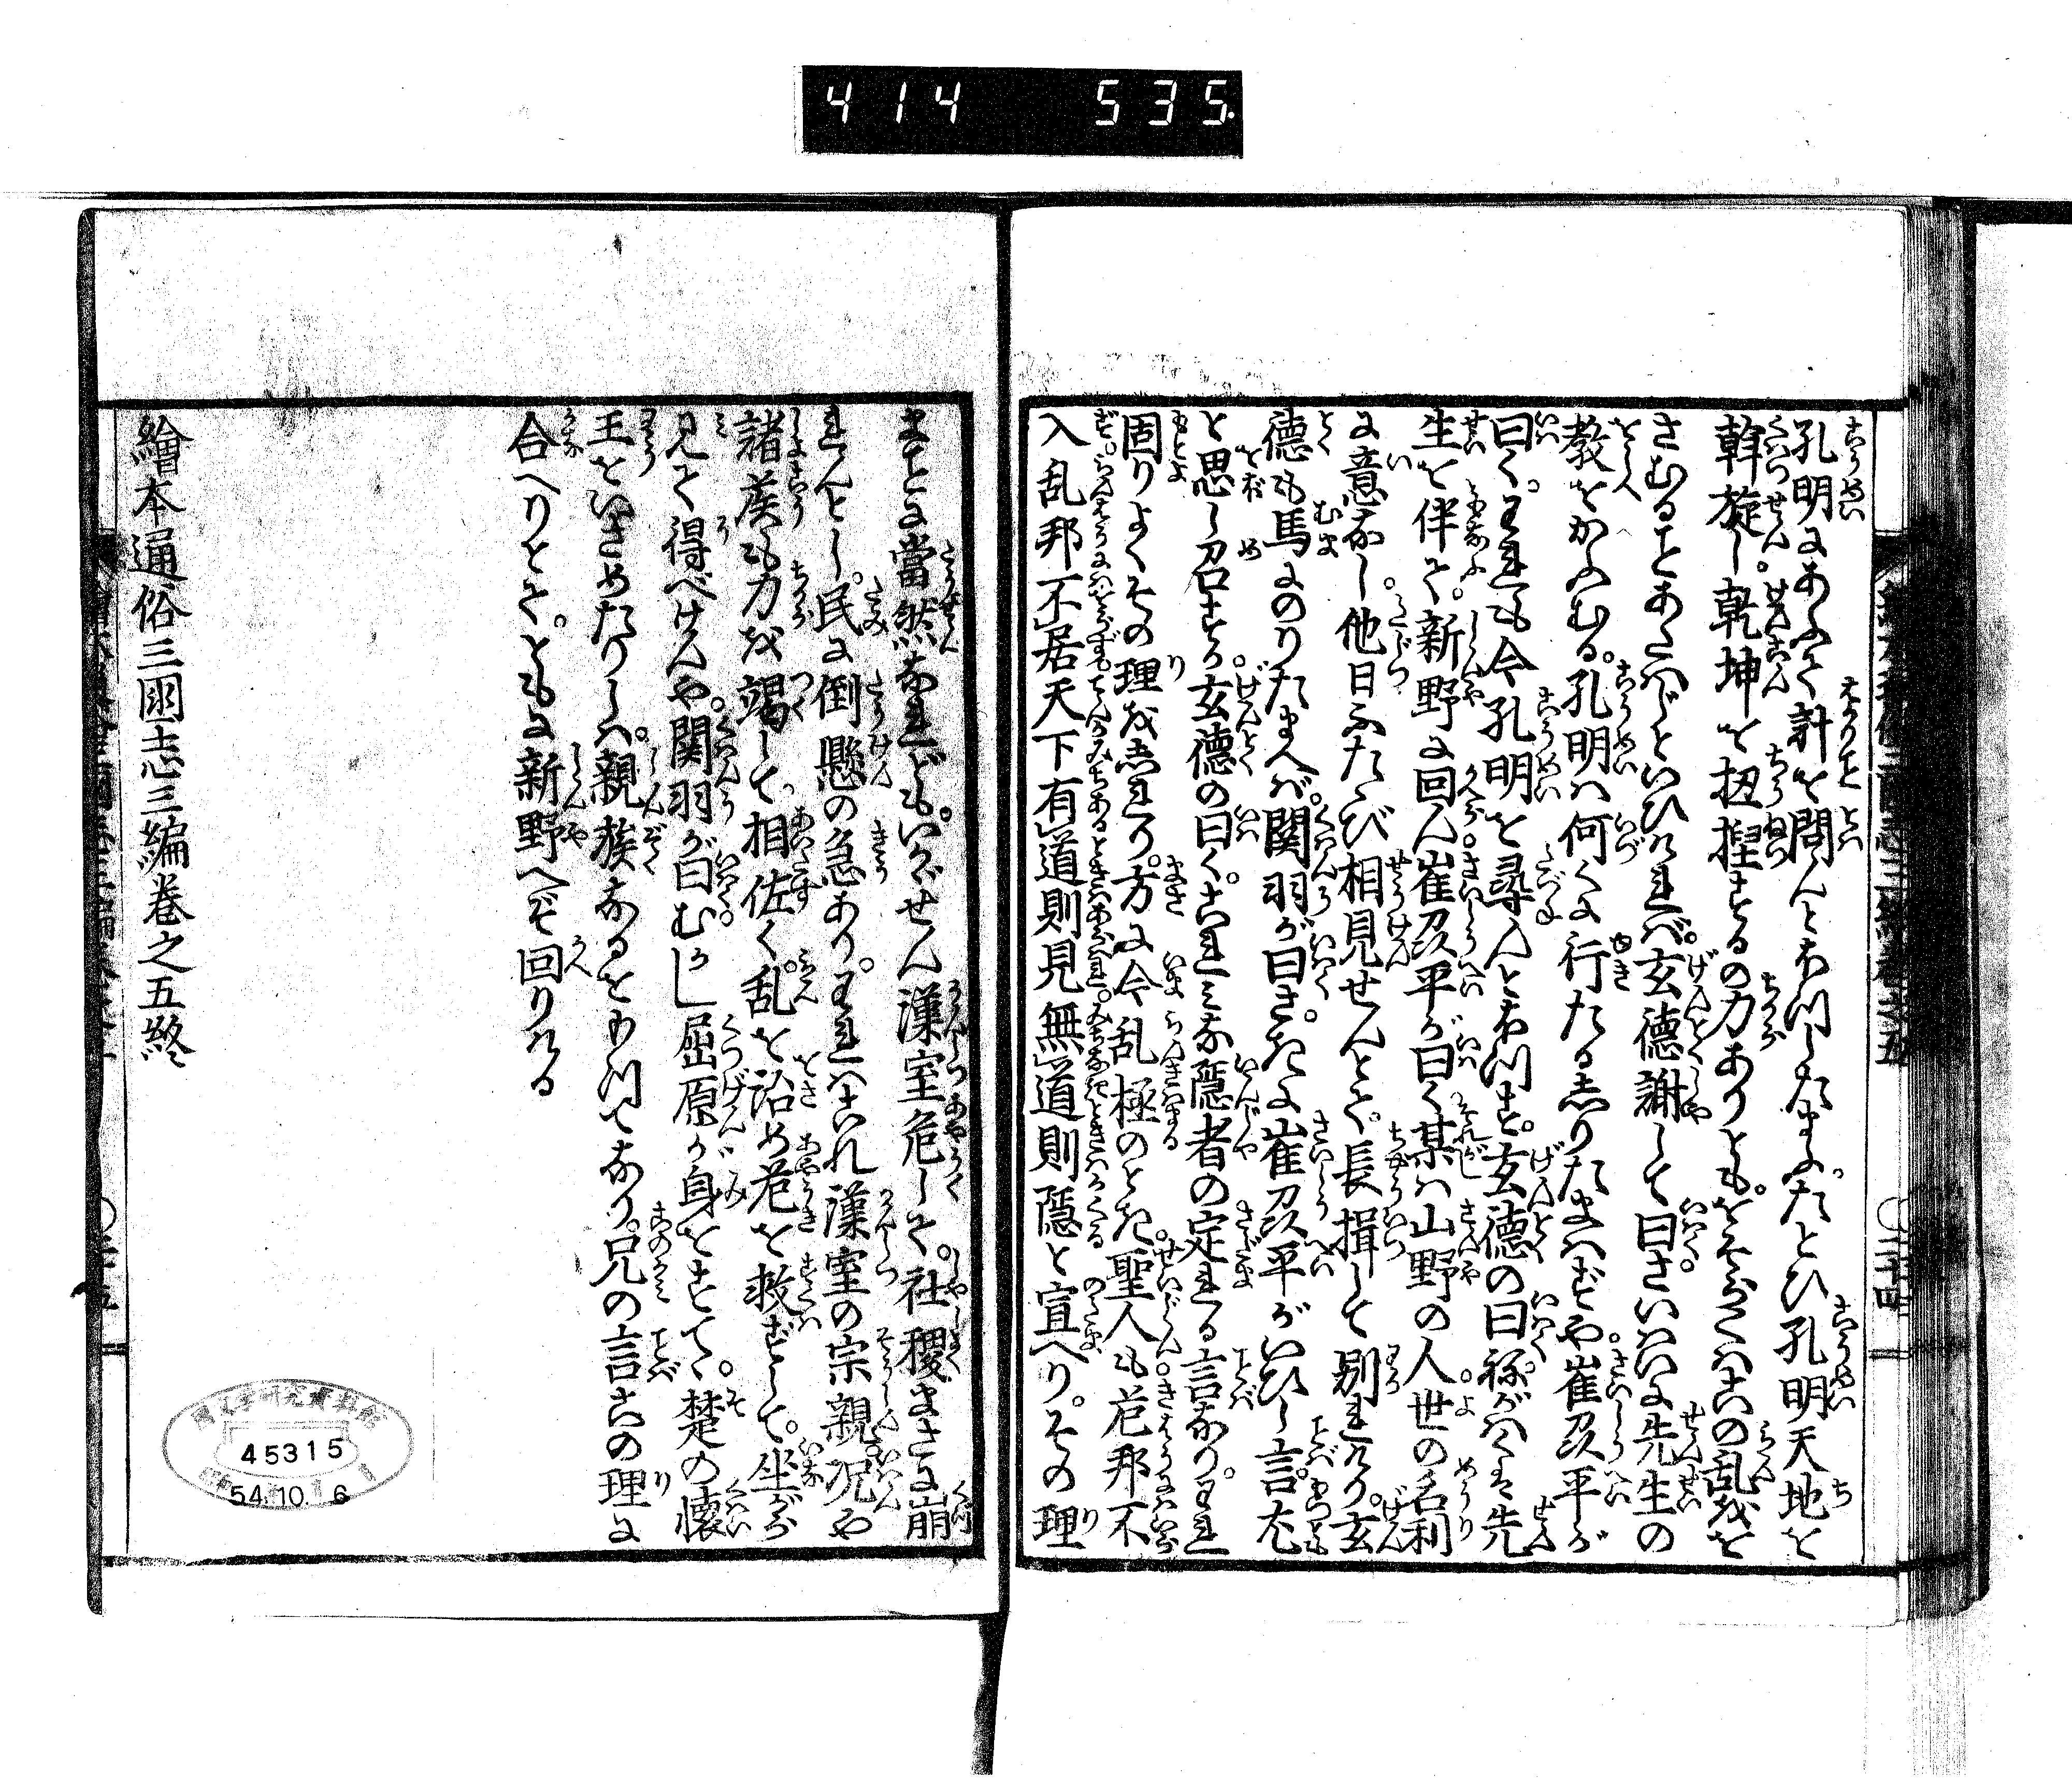 414 535
孔明にあふて計を問んと欲したまふ。たとひ孔明天地を
斡旋し。乾坤を扭捏するの力ありとも。をそらくはこの乱をを
さむることあたはじといひければ。玄徳謝して曰さいはいに先生の
教をかふむる。孔明は何くに行たるしりたまはずや。崔州平が
曰く。われも今孔明を尋んと欲す。玄徳の曰ねがはくは先
生を伴て。新野に回ん。崔州平が曰く某は山野の人。世の名利
に意なし。他日ふたゝび相見せんとて。長揖して別れけり。玄
徳も馬にのりたまへば。関羽が曰さきに崔州平がいひし言尤
と思し召するか。玄徳の曰く。これみな隠者の定れる言なり。われ
固りよくその理をしれり。方に今乱極のとき。聖人も危邦不
入乱邦不居天下有道則見無道則隠と宣へり。その理
まことに當然なれども。いかゞせん漢室危して。社稷まさに崩
れんとし。民に倒懸の急あり。われはこれ漢室の宗親况や
諸侯も力を竭して。相佐く。乱を治め危を救ずして。坐がら
見て得べけんや。関羽が曰むかし屈原が身をすてゝ。楚の懐
王をいさめたりしは。親族なるをもつてなり。兄の言この理に
合へりとて。ともに新野へぞ回りける
繪本通俗三國志三編巻之五終
45315
54.10.6